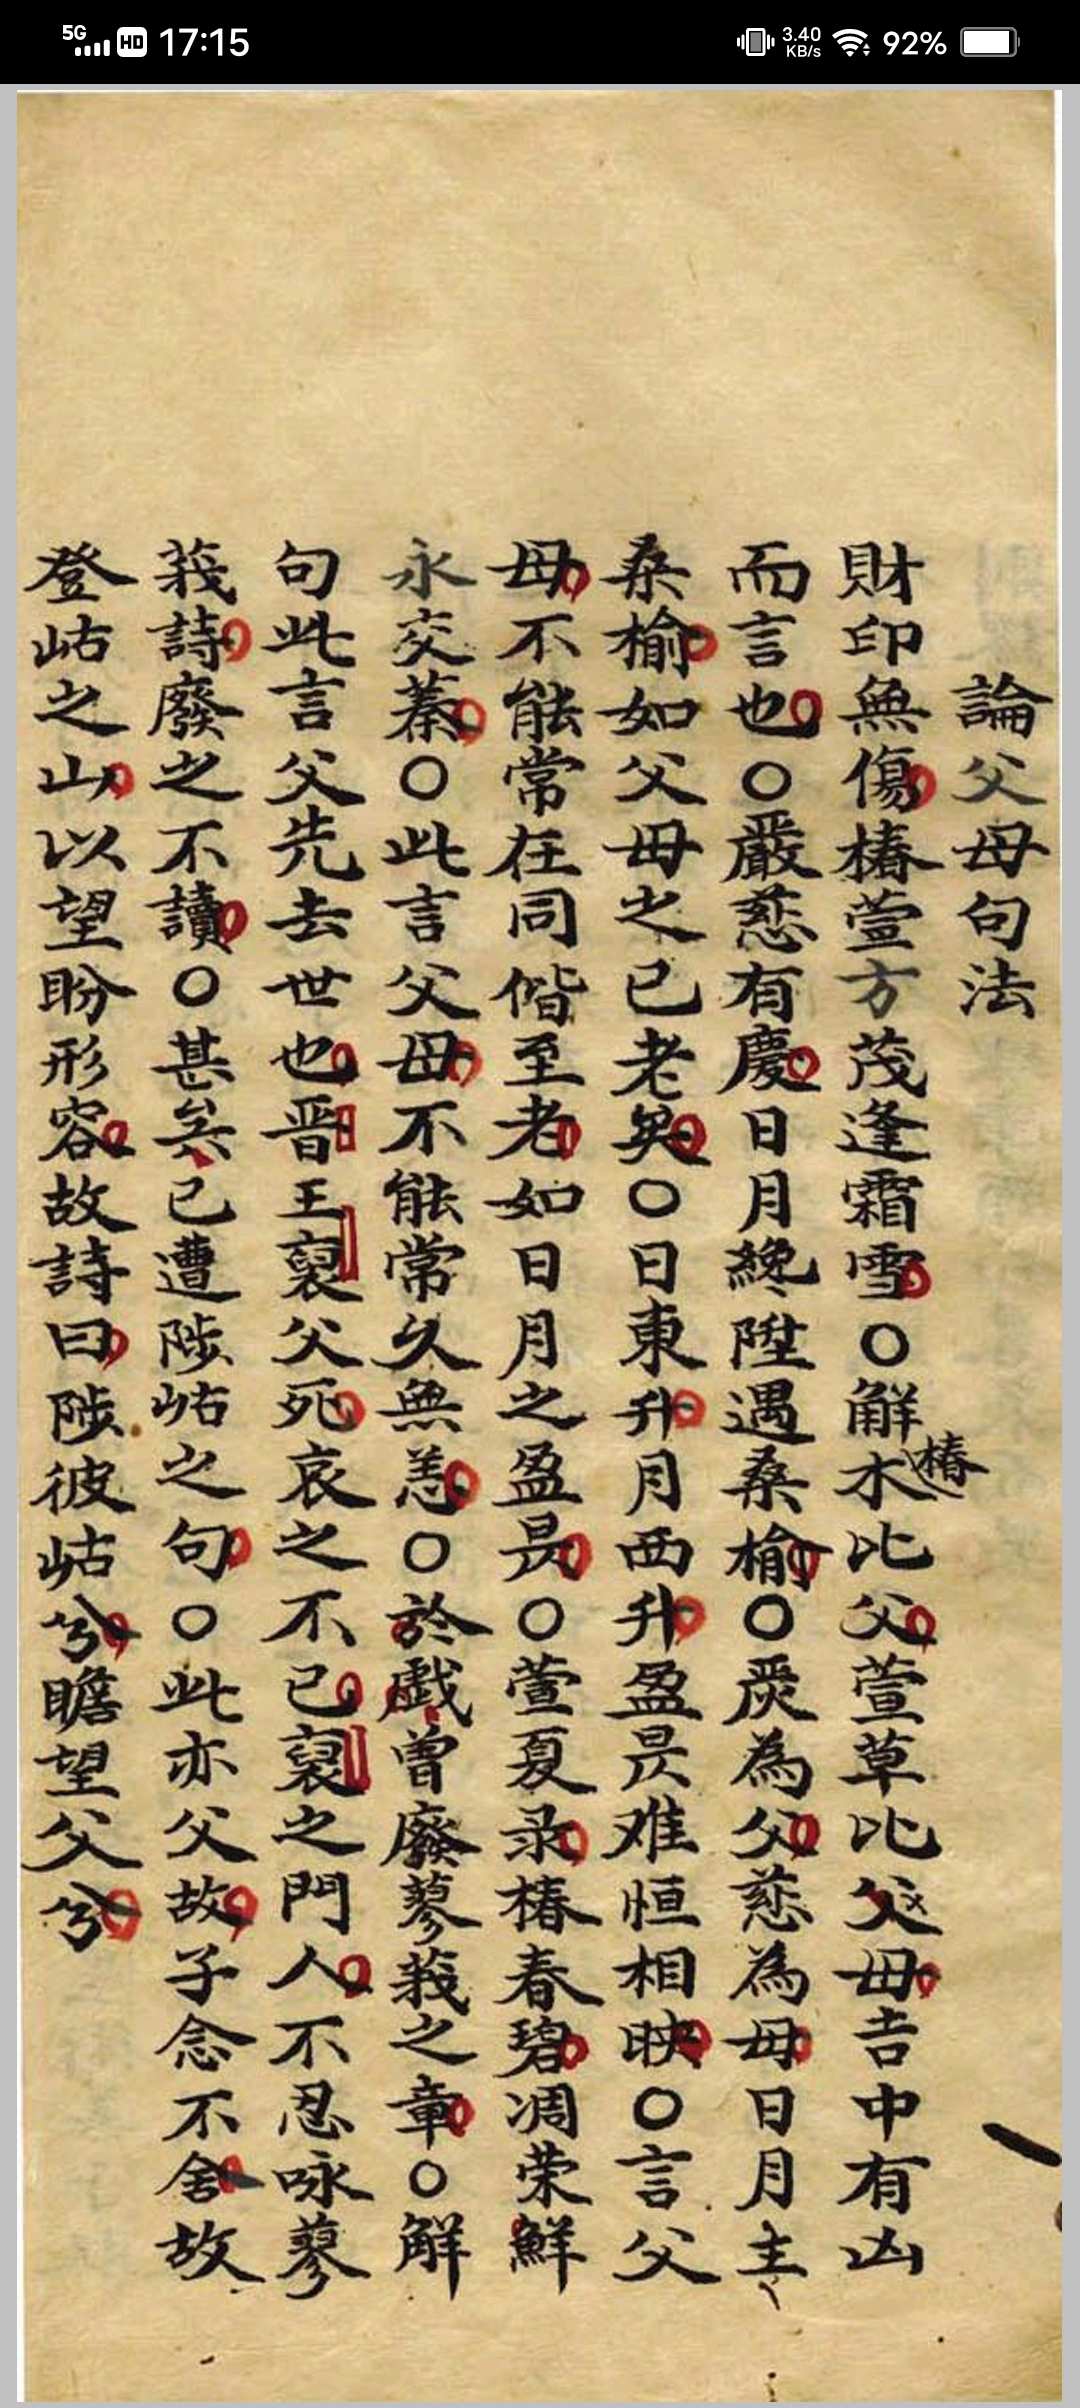 5G HD 17:15 3.40 KB/s 92%
論父母句法
財印無傷椿萱方茂逢霜雪〇解木椿比父萱草比父母吉中有凶
而言也〇嚴慈有慶日月纔陞遇桑榆〇嚴為父慈為母日月主
桑榆如父母之已老矣〇日東升月西升盈昃难恒相映〇言父
母不能常在同偕至老如日月之盈昃〇萱夏录椿春碧凋荣鮮
永交蓁〇此言父母不能常久無恙〇於戲曾廢蓼莪之章〇解
句此言父先去世也晋王裒父死哀之不已裒之門人不忍咏蓼
莪詩廢之不讀〇甚矣已遭陟岵之句〇此亦父故子念不舍故
登岵之山以望盼形容故詩曰陟彼岵兮瞻望父兮